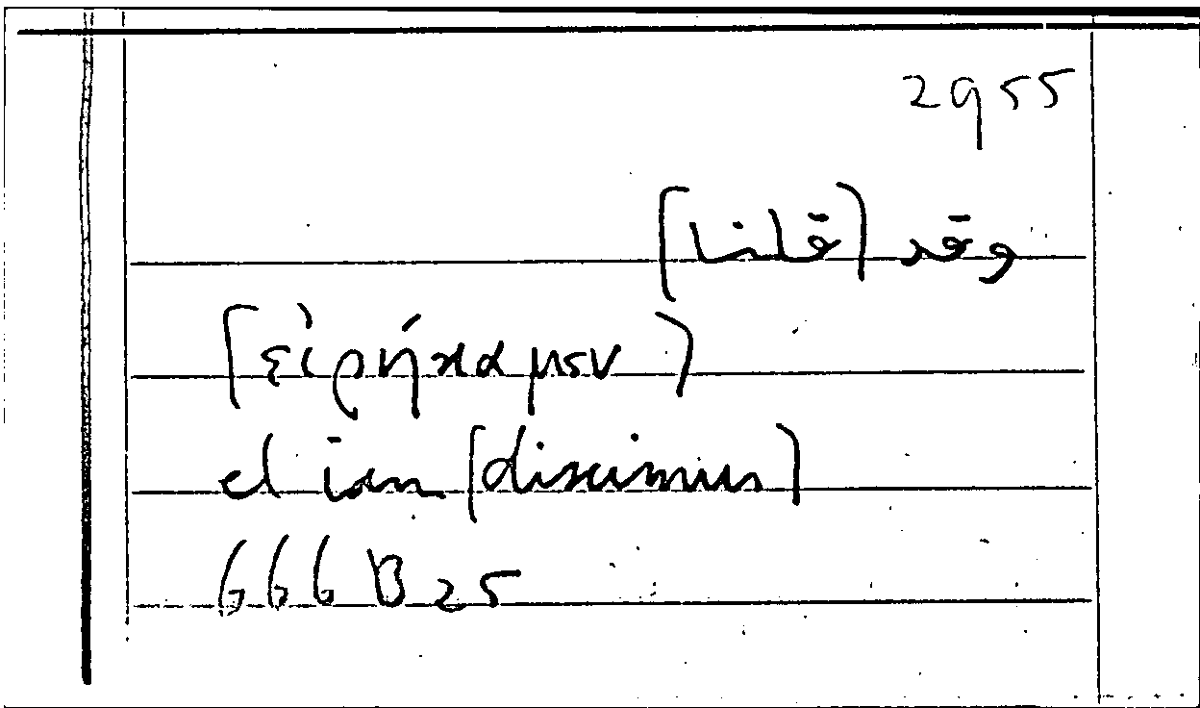 2955
وقد (قلنا)
(εἰρήκαμεν)
et iam (diximus)
666 B 25